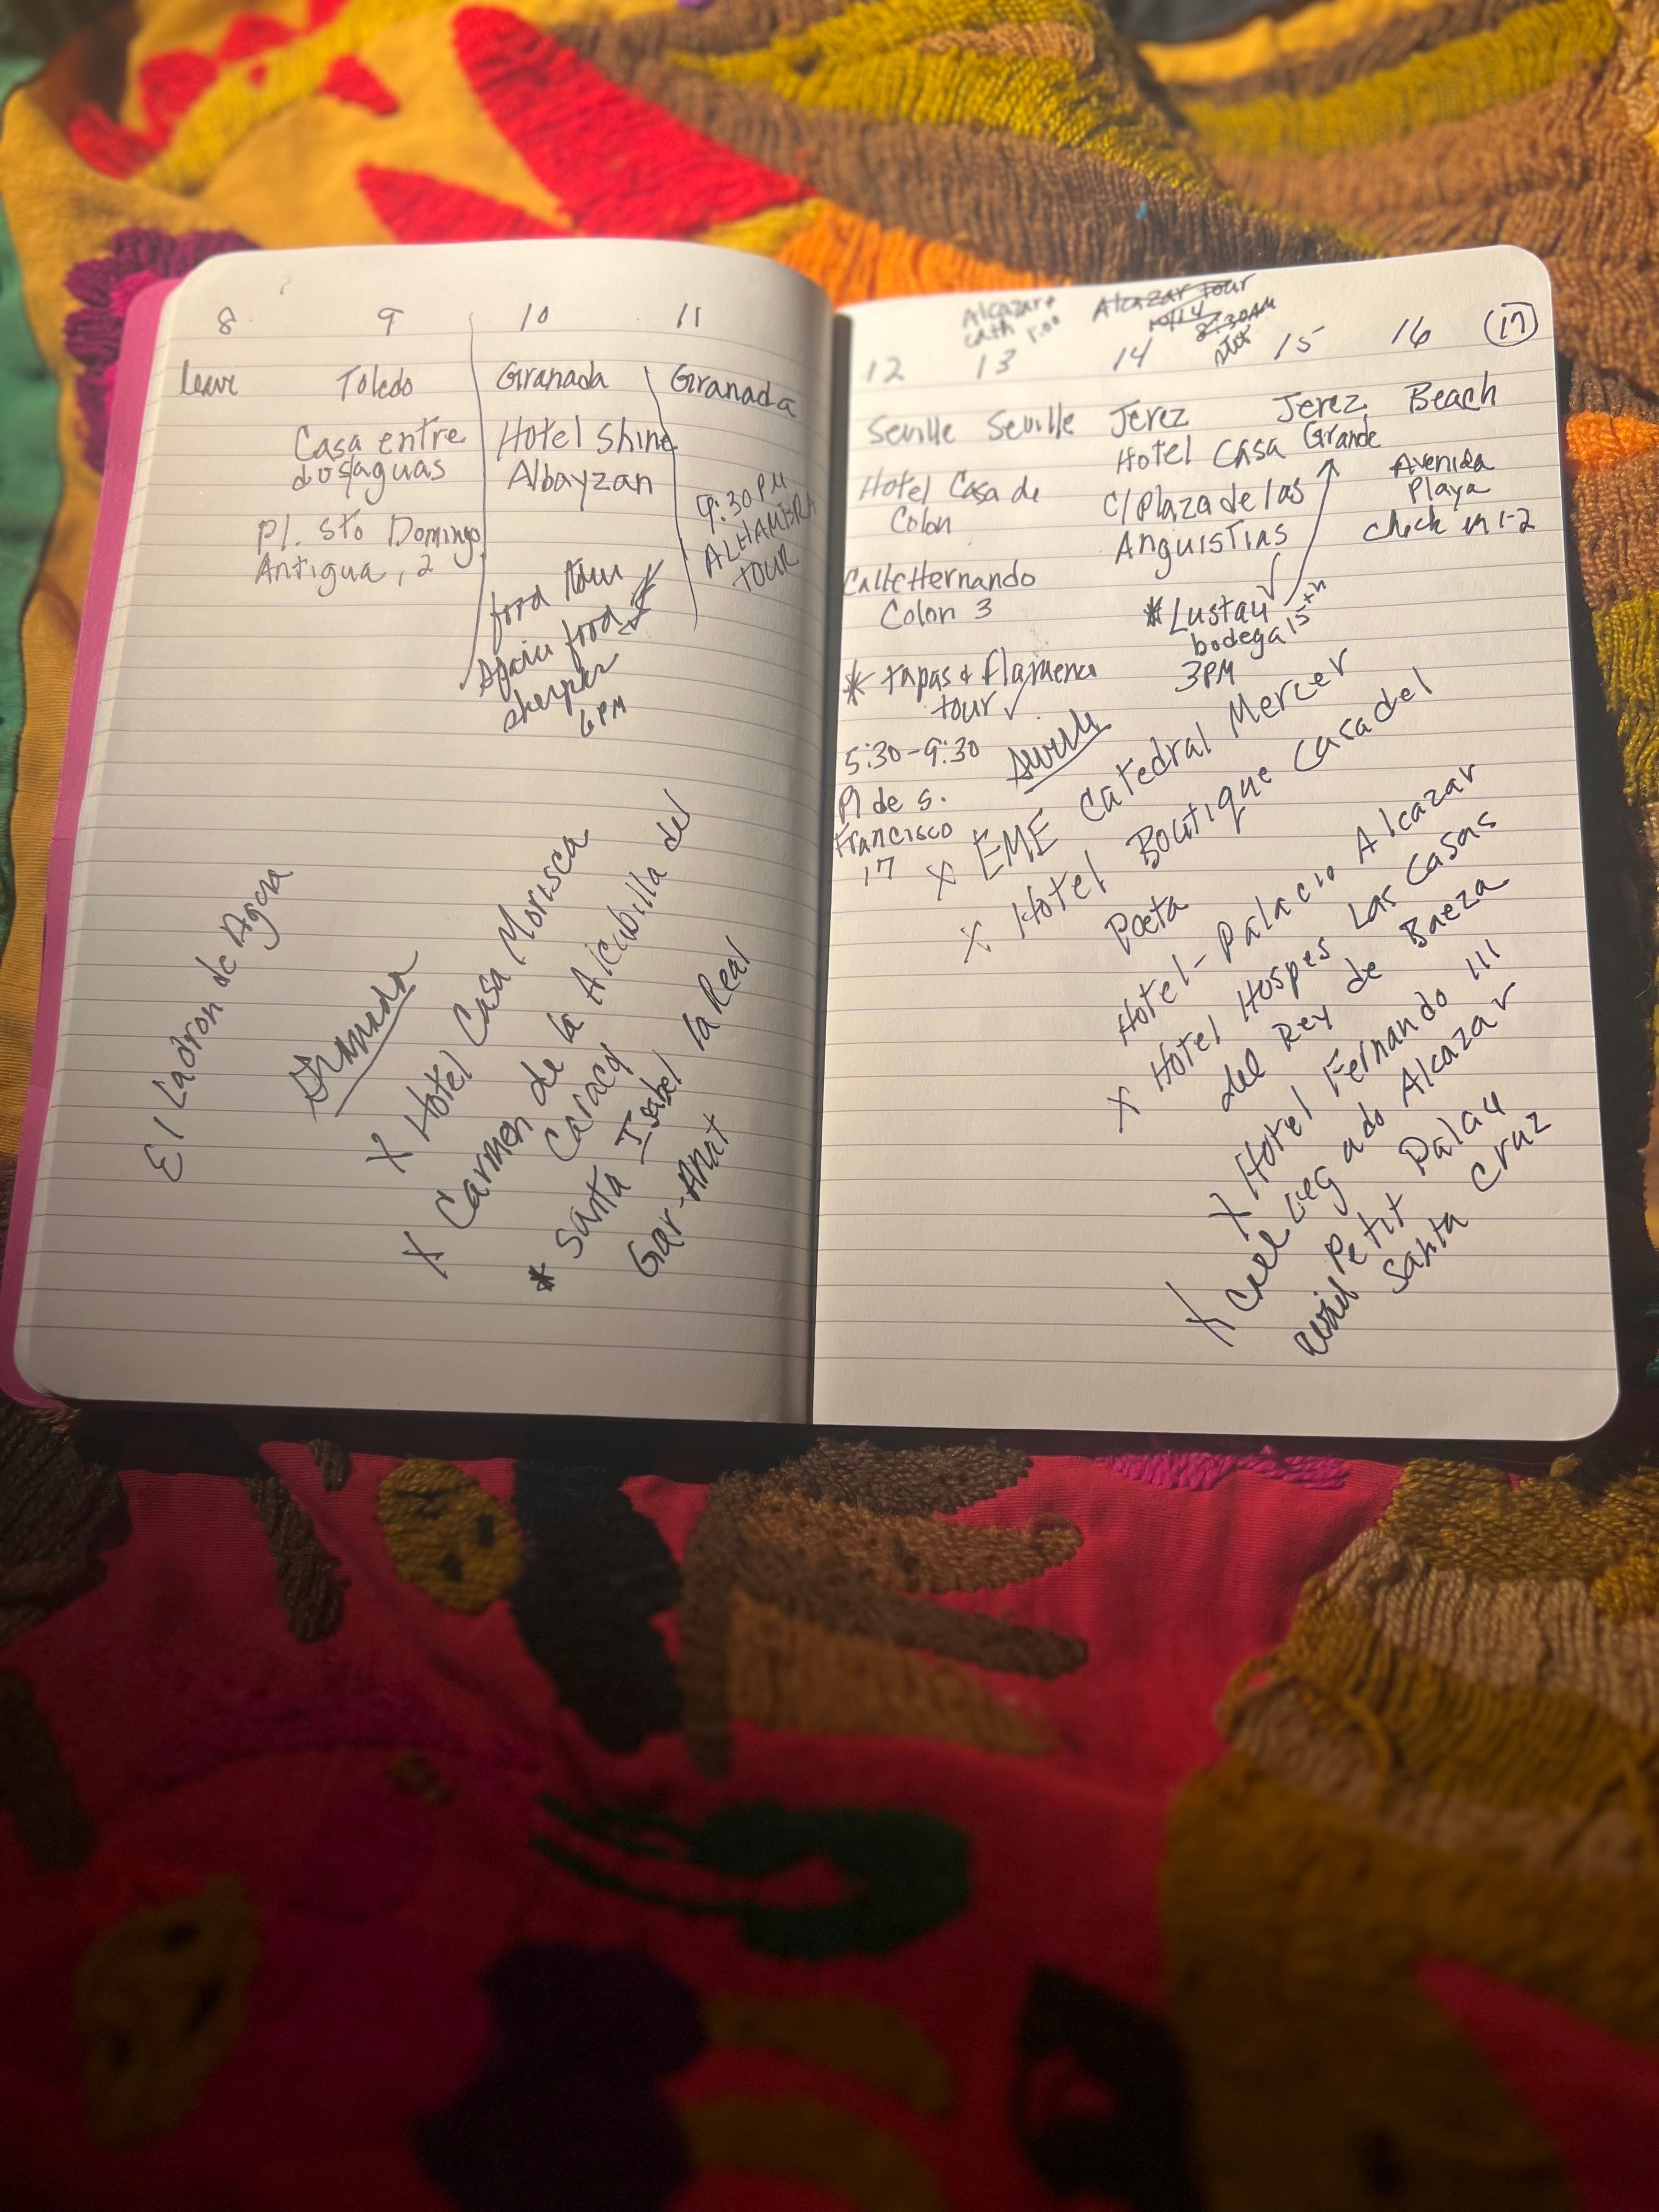 8 9 10 11
leave Toledo Granada Granada
Casa entre
dos/aguas
Pl. Sto Domingo
Antigua, 2
Hotel Shine
Albayzan
food tour
Spain food
sherpas
6PM
9:30 PM
ALHAMBRA
TOUR
El Ladron de Agua
Granada
X Hotel Casa Morisca
X Carmen de la Alcubilla del
Caracol
* Santa Isabel la Real
Gar-Anat
Alcazar +
Cath 1:00
Alcazar Tour
10/14
8:30AM
12 13 14 15 16 17
Seville Seville Jerez Jerez Beach
Hotel Casa de
Colon
Calle Hernando
Colon 3
* tapas & flamenco
tour ✓
5:30-9:30
Pl de S.
Francisco
17
Hotel Casa Grande
C/ Plaza de las
Anguistias
* Lustau ✓
bodega 15th
3PM
Avenida
Playa
check in 1-2
Seville
X EME Catedral Mercer
X Hotel Boutique Casa del
Poeta
Hotel - Palacio Alcazar
X Hotel Hospes Las Casas
del Rey de Baeza
X Hotel Fernando III
X Legado Alcazar
Petit Palau
Santa Cruz